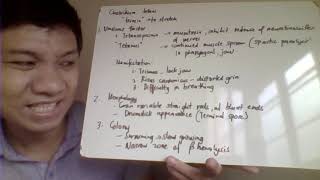 Clostridium tetani
"tennis" → to stretch
1. Virulence factor
→ Tetanospasmin → neurotoxin, inhibit release of neurotransmitter of nerves
"Tetanus" → continued muscle spasm (spastic paralysis) in pharyngeal, jaw
Manifestation
1. Trismus - lock jaw
2. Risus sardonicus - distorted grin
3. Difficulty in breathing
2. Morphology
- Gram variable straight rods, w/ blunt ends
- Drumstick appearance (terminal spore)
3. Colony
- Swarming without spreading
- Narrow zone of β hemolysis